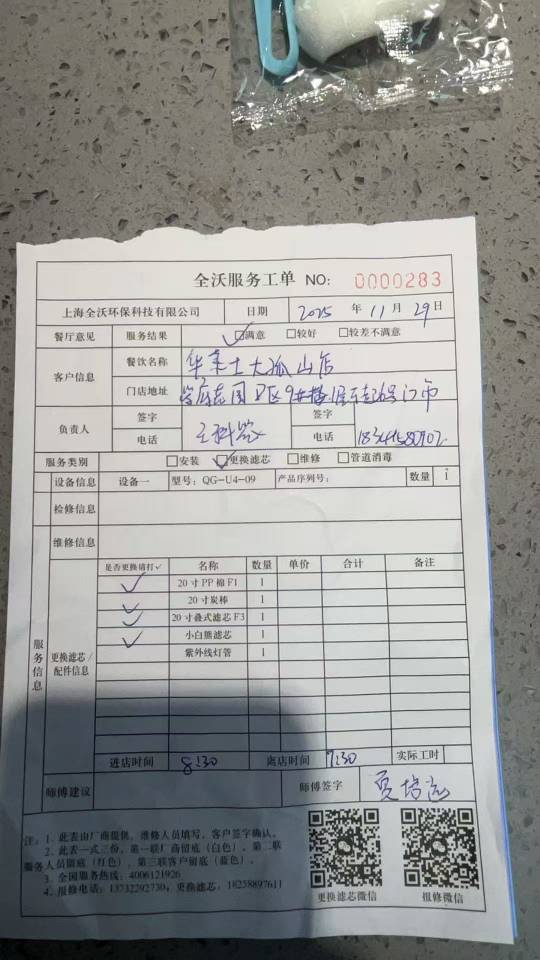 全沃服务工单 NO: 0000283
上海全沃环保科技有限公司 日期 2025 年 11 月 29 日
餐厅意见 服务结果 ☑满意 □较好 □较差不满意
客户信息 餐饮名称 华莱士大孤山店
门店地址 区9#楼 门市
负责人 签字 签字
电话 电话
服务类别 □安装 ☑更换滤芯 □维修 □管道消毒
设备信息 设备一 型号: QG-U4-09 产品序列号: 数量 1
检修信息
维修信息
服务信息
更换滤芯/配件信息
是否更换请打✓ 名称 数量 单价 合计 备注
✓ 20寸PP棉F1 1
✓ 20寸炭棒 1
✓ 20寸叠式滤芯F3 1
✓ 小白熊滤芯 1
紫外线灯管 1
进店时间 8:30 离店时间 9:30 实际工时
师傅建议 师傅签字 贾
注: 1、此表由厂商提供, 维修人员填写, 客户签字确认。
2、此表一式三份, 第一联厂商留底(白色)、第二联
服务人员留底(红色)、第三联客户留底(蓝色)。
3、全国服务热线: 4006121926
4、报修电话: 13732292730, 更换滤芯: 18258897611
更换滤芯微信 报修微信